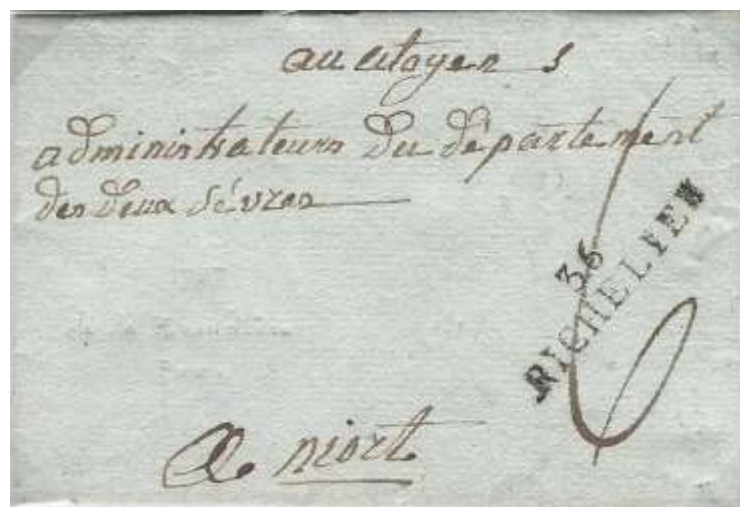 au citoyen s
administrateurs du département
des deux sévres
36
RICHELIEU
6
a niort